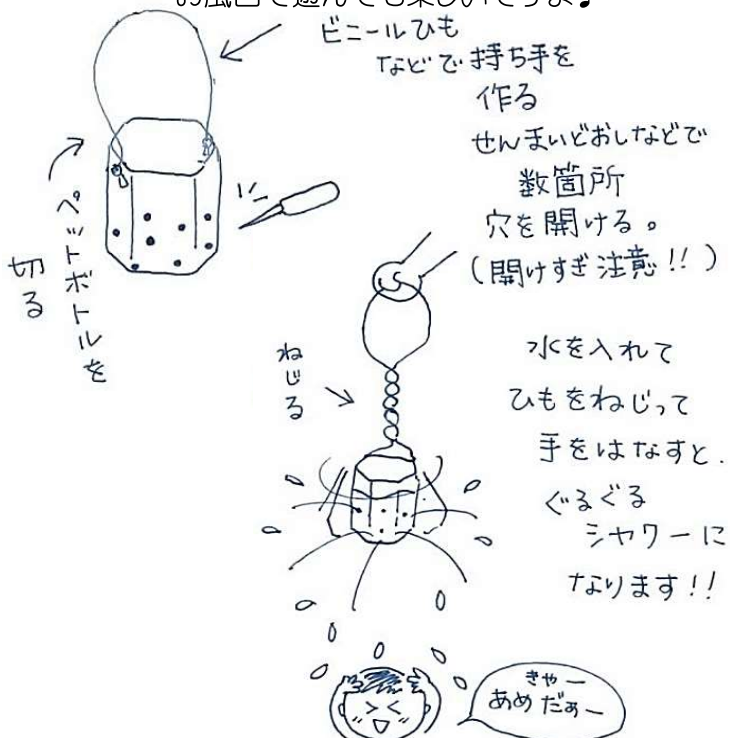 お風呂で遊んでも楽しいですよ♪
ビニールひも
などで持ち手を
作る
せんまいどおしなどで
数箇所
穴を開ける。
(開けすぎ注意!!)
ペットボトルを
切る
ねじる
水を入れて
ひもをねじって
手をはなすと.
ぐるぐる
シャワーに
なります!!
きゃー
あめだぁー